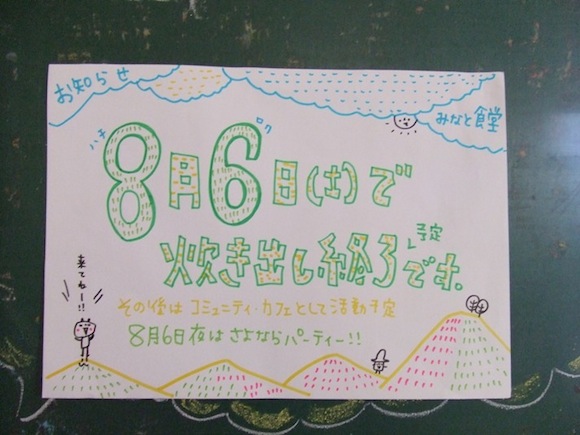 お知らせ
みなと食堂
ハチ ロク
8月6日(土)で
炊き出し終了予定です.
その後はコミュニティ・カフェとして活動予定
8月6日夜はさよならパーティー!!
来てねー!!